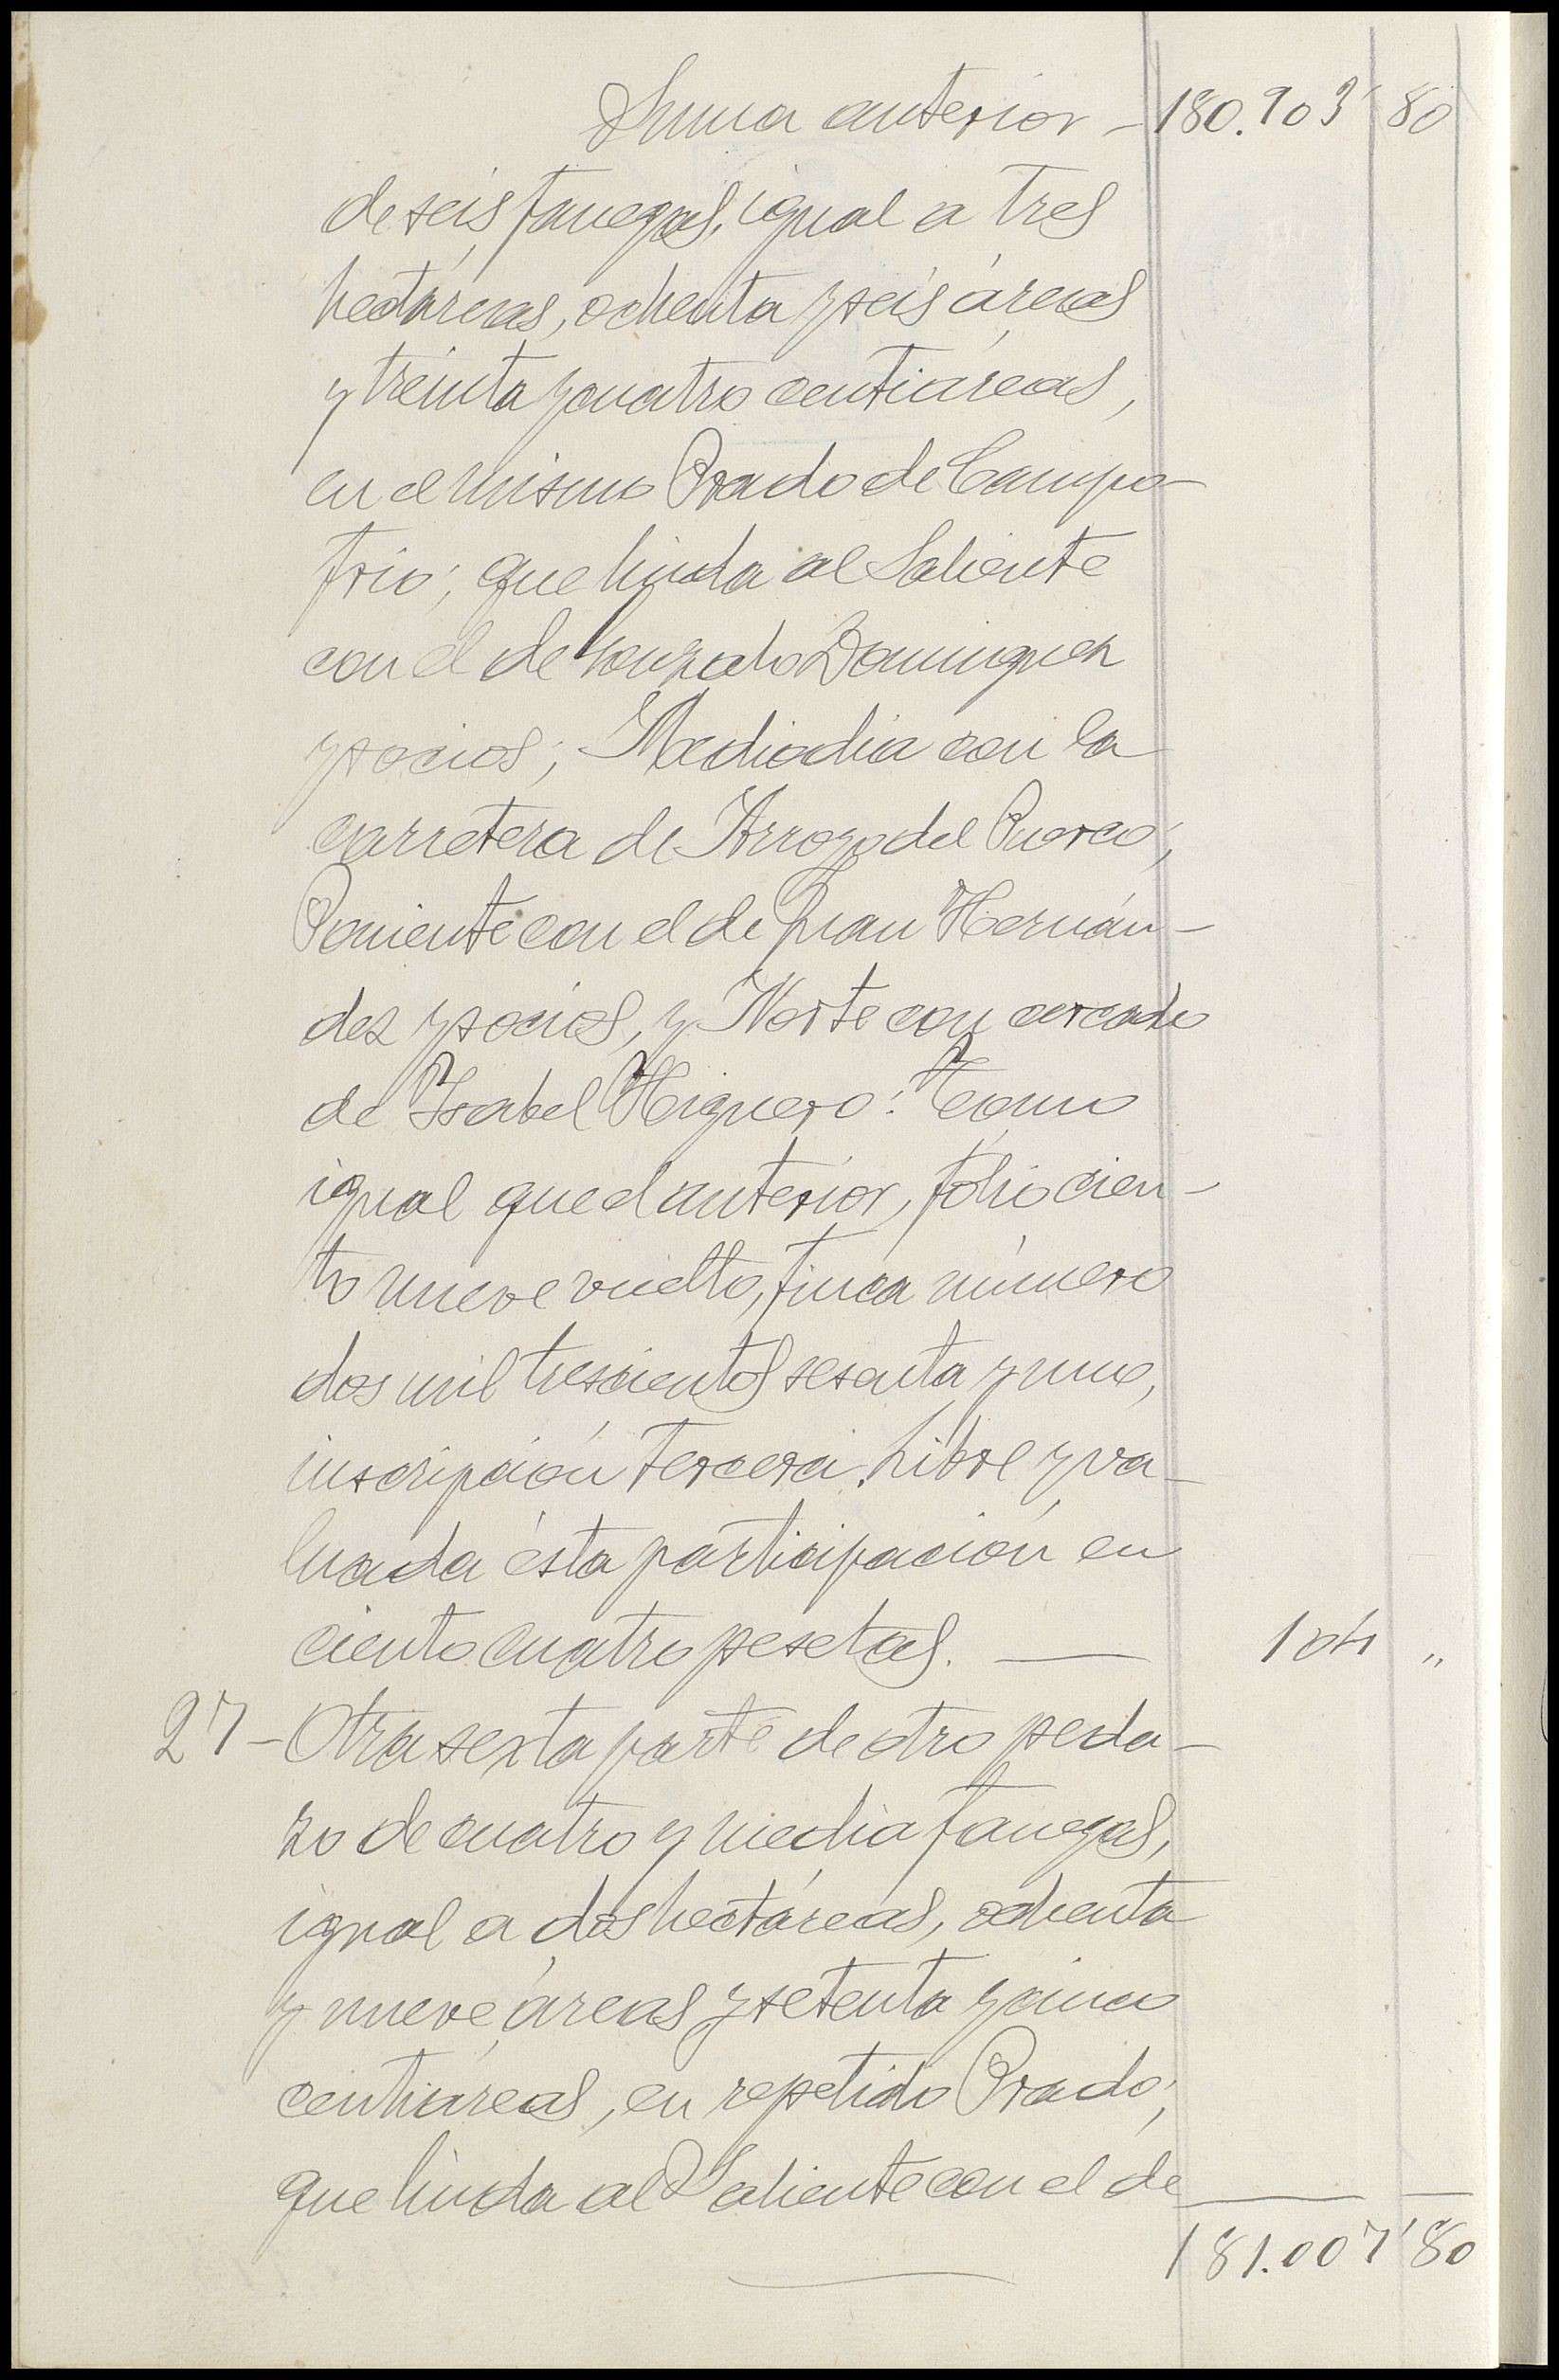 Suma anterior - 180.903' 80
de seis fanegas, igual a tres
hectáreas, ochenta y seis áreas
y treinta y cuatro centiáreas,
en el mismo Prado de Campo-
frio; que linda al Saliente
con el de Gonzalo Dominguez
y socios; Mediodia con la
carretera de Arroyo del Puerco;
Poniente con el de Juan Hernán-
dez y socios, y Norte con cercado
de Isabel Higuero: Tomo
igual que el anterior, folio cien-
to nueve vuelto, finca número
dos mil trescientos sesenta y uno,
inscripción tercera. Libre y va-
luada ésta participación en
ciento cuatro pesetas. — 104 "
27 - Otra sexta parte de otro peda-
zo de cuatro y media fanegas,
igual a dos hectáreas, ochenta
y nueve áreas y setenta y cinco
centiáreas, en repetido Prado;
que linda al Saliente con el de
181.007' 80